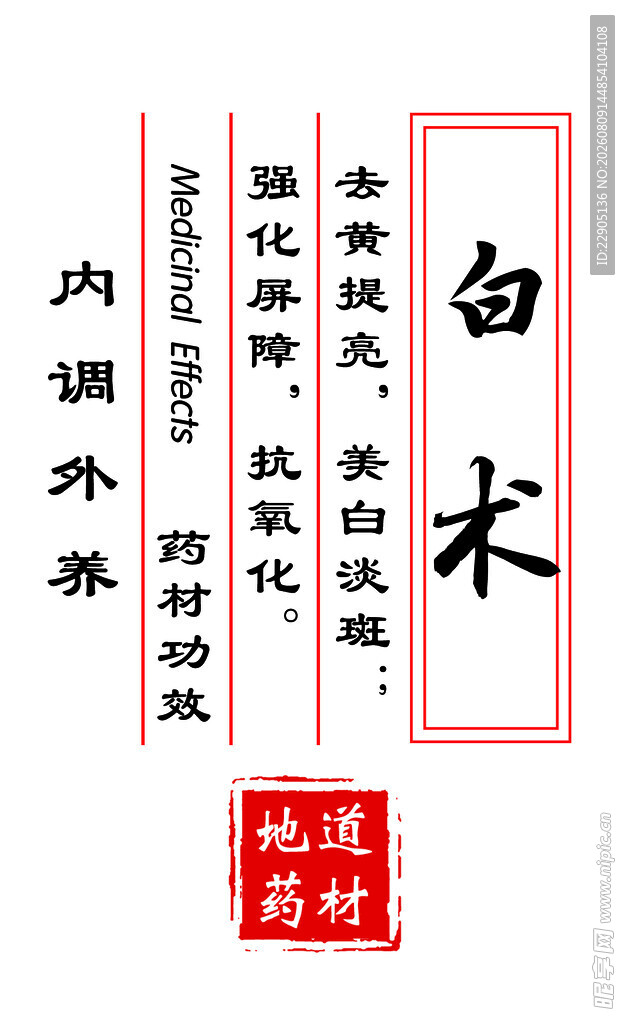 白术
去黄提亮，美白淡斑；
强化屏障，抗氧化。
Medicinal Effects 药材功效
内调外养
地道
药材
ID:22905136 NO:20260809144854104108
昵享网 www.nipic.cn